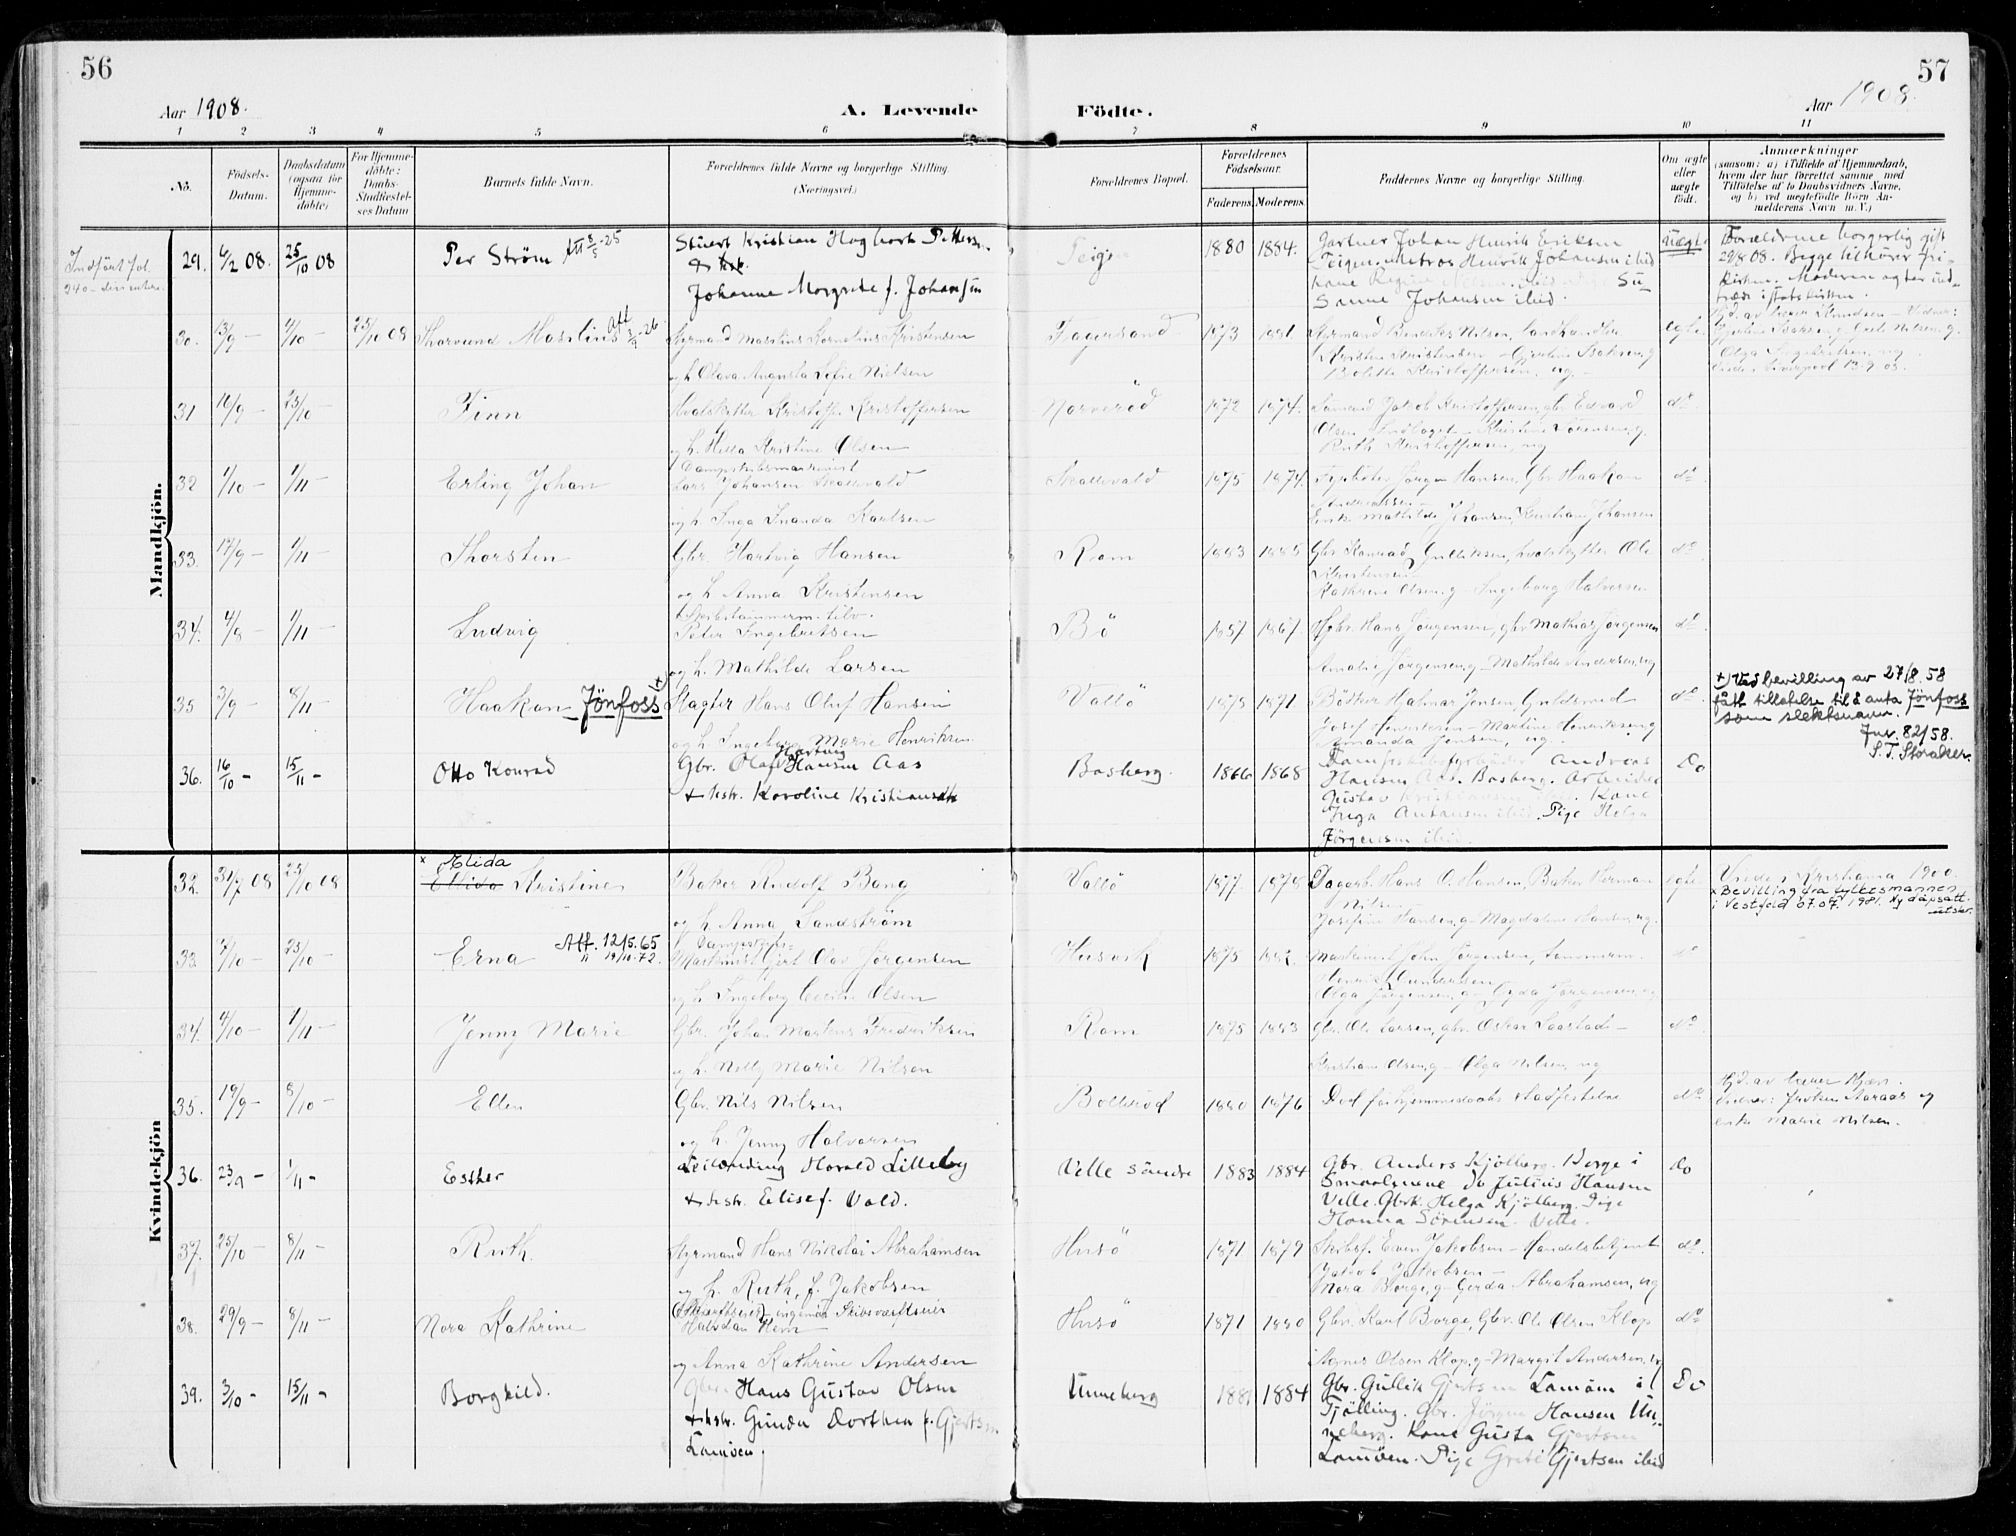 56
57
Aar 1908.
A. Levende
Födte.
Aar 1908.
1 2 3 4 5 6 7 8 9 10 11
No.
Födsels-
Datum.
Daabsdatum
(ogsaa for
Hjemme-
döbte)
For Hjemme-
döbte:
Daabs-
Stadfæstel-
ses Datum
Barnets fulde Navn.
Forældrenes fulde Navne og borgerlige Stilling
(Næringsvei.)
Forældrenes Bopæl.
Forældrenes
Födselsaar.
Faderens. Moderens.
Faddernes Navne og borgerlige Stilling.
Om ægte
eller
uægte
födt.
Anmærkninger
(saasom: a) i Tilfælde af Hjemmedaab,
hvem der har forrettet samme, med
Tilföielse af to Daabsvidners Navne,
og b) ved uegtefödte Börn An-
melderens Navn m. V.)
Mandkjön.
29. 6/2 08. 25/10 08 Per Strøm Att 8/5-25
Stuert Kristian Hagbart
Johanne Margrete f. Johansen
Teigen 1880 1884.
Gartner Johan Henrik Eriksen
Teigen. matros Henrik Johansen ibid
Sanne Johansen ibid.
Uægte
Forældrene borgerlig gift
29/8 08. Begge tilhører fri-
kirken. Moderen agter ud-
træde i statskirken.
30. 13/9 – 4/10 – 25/10 08 Thorvund Masilius Att
Styrmand Masilius Kornelius Kristensen
og h. Olava Augusta Sofie Nielsen
Fagersand 1873 1881
Styrmand Benedikt Nilsen, Landhandler
Kristen Kristensen
Bolette Kristoffersen, ug. –
egte.
31 16/9 – 25/10 – Finn
Hvalskytter Kristoff. Kristoffersen
og h. Hilda Kristine Olsen
Norverød 1872 1874.
Jakob Kristoffersen, gbr. Edvard
Ruth Kristoffersen, ug
do
32 1/10 – 1/11 – Erling Johan
Dampskibsmaskinist
Lars Johansen Skallevald
og h. Inga Amanda Karlsen
Skallevald 1875 1874.
Fyrböter Jörgen Hansen, Gbr. Haakon
Enke Mathilde Johansen, Kristian Johansen
do
33. 17/9 – 1/11 – Thorsten
Gbr. Hartvig Hansen
og h. Anna Kristensen
Rom 1883 1885
Gbr. Konrad Gulliksen, hvalskytter Ole
Kristensen –
Kathrine Olsen, g – Ingeborg Halvorsen
do
34. 4/9 – 1/11 – Ludvig
Skibstømmerm. tilv.
Peter Ingebretsen
og h. Mathilde Larsen
Bö 1857 1867.
Gbr. Hans Jörgensen, gbr Mathias Jörgensen
Amalie Jørgensen, g – Mathilde Andersen, ug
do
35 3/9 – 8/11 – Haakon Jönfoss +)
Slagter Hans Oluf Hansen
og h. Ingeborg Marie Henriksen
Vallö 1875 1871
Bötker Halmar Jensen, Guldsmed
Josef Henriksen – Martine Henriksen, g
Amanda Jensen, ug.
do
+) Ved bevilling av 27/8. 58
fått tillatelse til å anta Jönfoss
som slektsnavn.
Jnr. 82/58.
S. T. Storaker.
36. 16/10 – 15/11 – Otto Konrad
Gbr. Olaf Hartvig Hansen Aas
+ hstr. Karoline Kristiansdtr
Basberg. 1866 1868
Dampskibsfyrböder Andreas
Hansen Aas. Basberg. Arbeider
Gustav Kristiansen ibid. Kone
Inga Antonsen ibid. Pige Helga
Jörgensen ibid.
Do
Kvindekjön
32. 31/7 08 25/10 08 × Elida
Ellida Kristine
Baker Rudolf Bang
og h. Anna Sandström
Vallö 1877 1878
Dagarb. Hans O. Hansen, Baker Herman
Nilsen
Josefine Hansen, g – Magdalene Hansen, ug.
egte
Viede i Kristiania 1900.
× Bevilling fra fylkesmannen
i Vestfold 07.07.1981. Ny dåpsatt.
utskr.
33. 7/10 – 25/10 – Erna Att. 12/5.65
" 19/10.72
Dampskibs-
Maskinist Gjert Olav Jørgensen
og h. Ingeborg Cecilie Olsen
Husvik 1875 1882.
Maskinist John Jørgensen, Tømmerm.
Henrik Gundersen
Olga Jørgensen, g – Gyda Jørgensen, ug
do
34. 4/10 – 1/11 – Jenny Marie
Gbr. Johan Martens Fredriksen
og h. Nelly Marie Nilsen
Rom 1875 1883
Gbr. Ole Larsen, gbr. Oskar Saastad –
Kristiane Olsen, g – Olga Nilsen, ug
do
35. 19/9 – 8/10 – Ellen
Gbr. Nils Nilsen
og h. Jenny Halvorsen
Bollerød 1880 1876
Död før hjemmedaabs stadfæstelse
do
Hjd. av lærer Hjærn.
enke Marie Nilsen.
36. 23/9 – 1/11 – Esther
Leilænding Harald Lilleby
+ hstr. Elise f. Vold.
Velle söndre 1883 1884
Gbr. Anders Kjölberg. Borge i
Smaalenene do Julius Hansen
Velle. Gbrk. Helga Kjölberg. Pige
Hanna Sörensen. Velle.
Do
37. 25/10 – 8/11 – Ruth.
Styrmand Hans Nikolai Abrahamsen
og h. Ruth, f. Jakobsen
Husö 1871 1879
Skibsf. Even Jakobsen – Handelsbetjent
Jakob Jakobsen –
Nora Borge, g – Gerda Abrahamsen, ug
do.
38. 29/9 – 8/11 – Nora Kathrine
ingeniør Skibsværftseier
Halvdan Hem
og Anna Kathrine Andersen
Husö 1871 1880
Gbr. Karl Borge, Gbr. Ole Olsen Klop
Agnes Olsen Klop, g – Margit Andersen, ug
do
39. 3/10 – 15/11 – Borghild.
Gbr. Hans Gustav Olsen
+ hstr. Gunda Dorthea f. Gjertsen
Lamöen.
Unneberg 1881 1884
Gbr. Gullik Gjertsen Lamöen i
Tjölling. Gbr. Jörgen Hansen Un-
neberg. Kone Gusta Gjertsen
Lamöen. Pige Grete Gjertsen ibid
Do